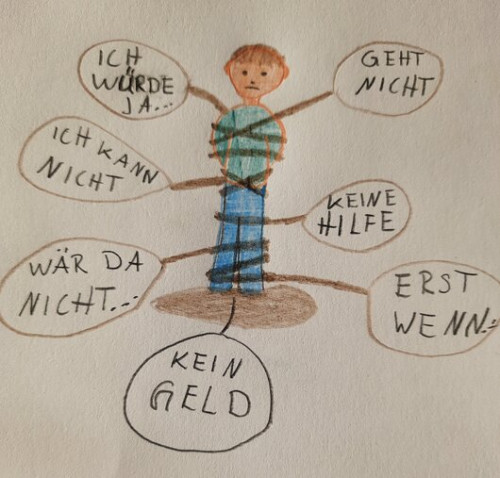 ICH
WÜRDE
JA...
GEHT
NICHT
ICH KANN
NICHT
KEINE
HILFE
WÄR DA
NICHT...
ERST
WENN...
KEIN
GELD